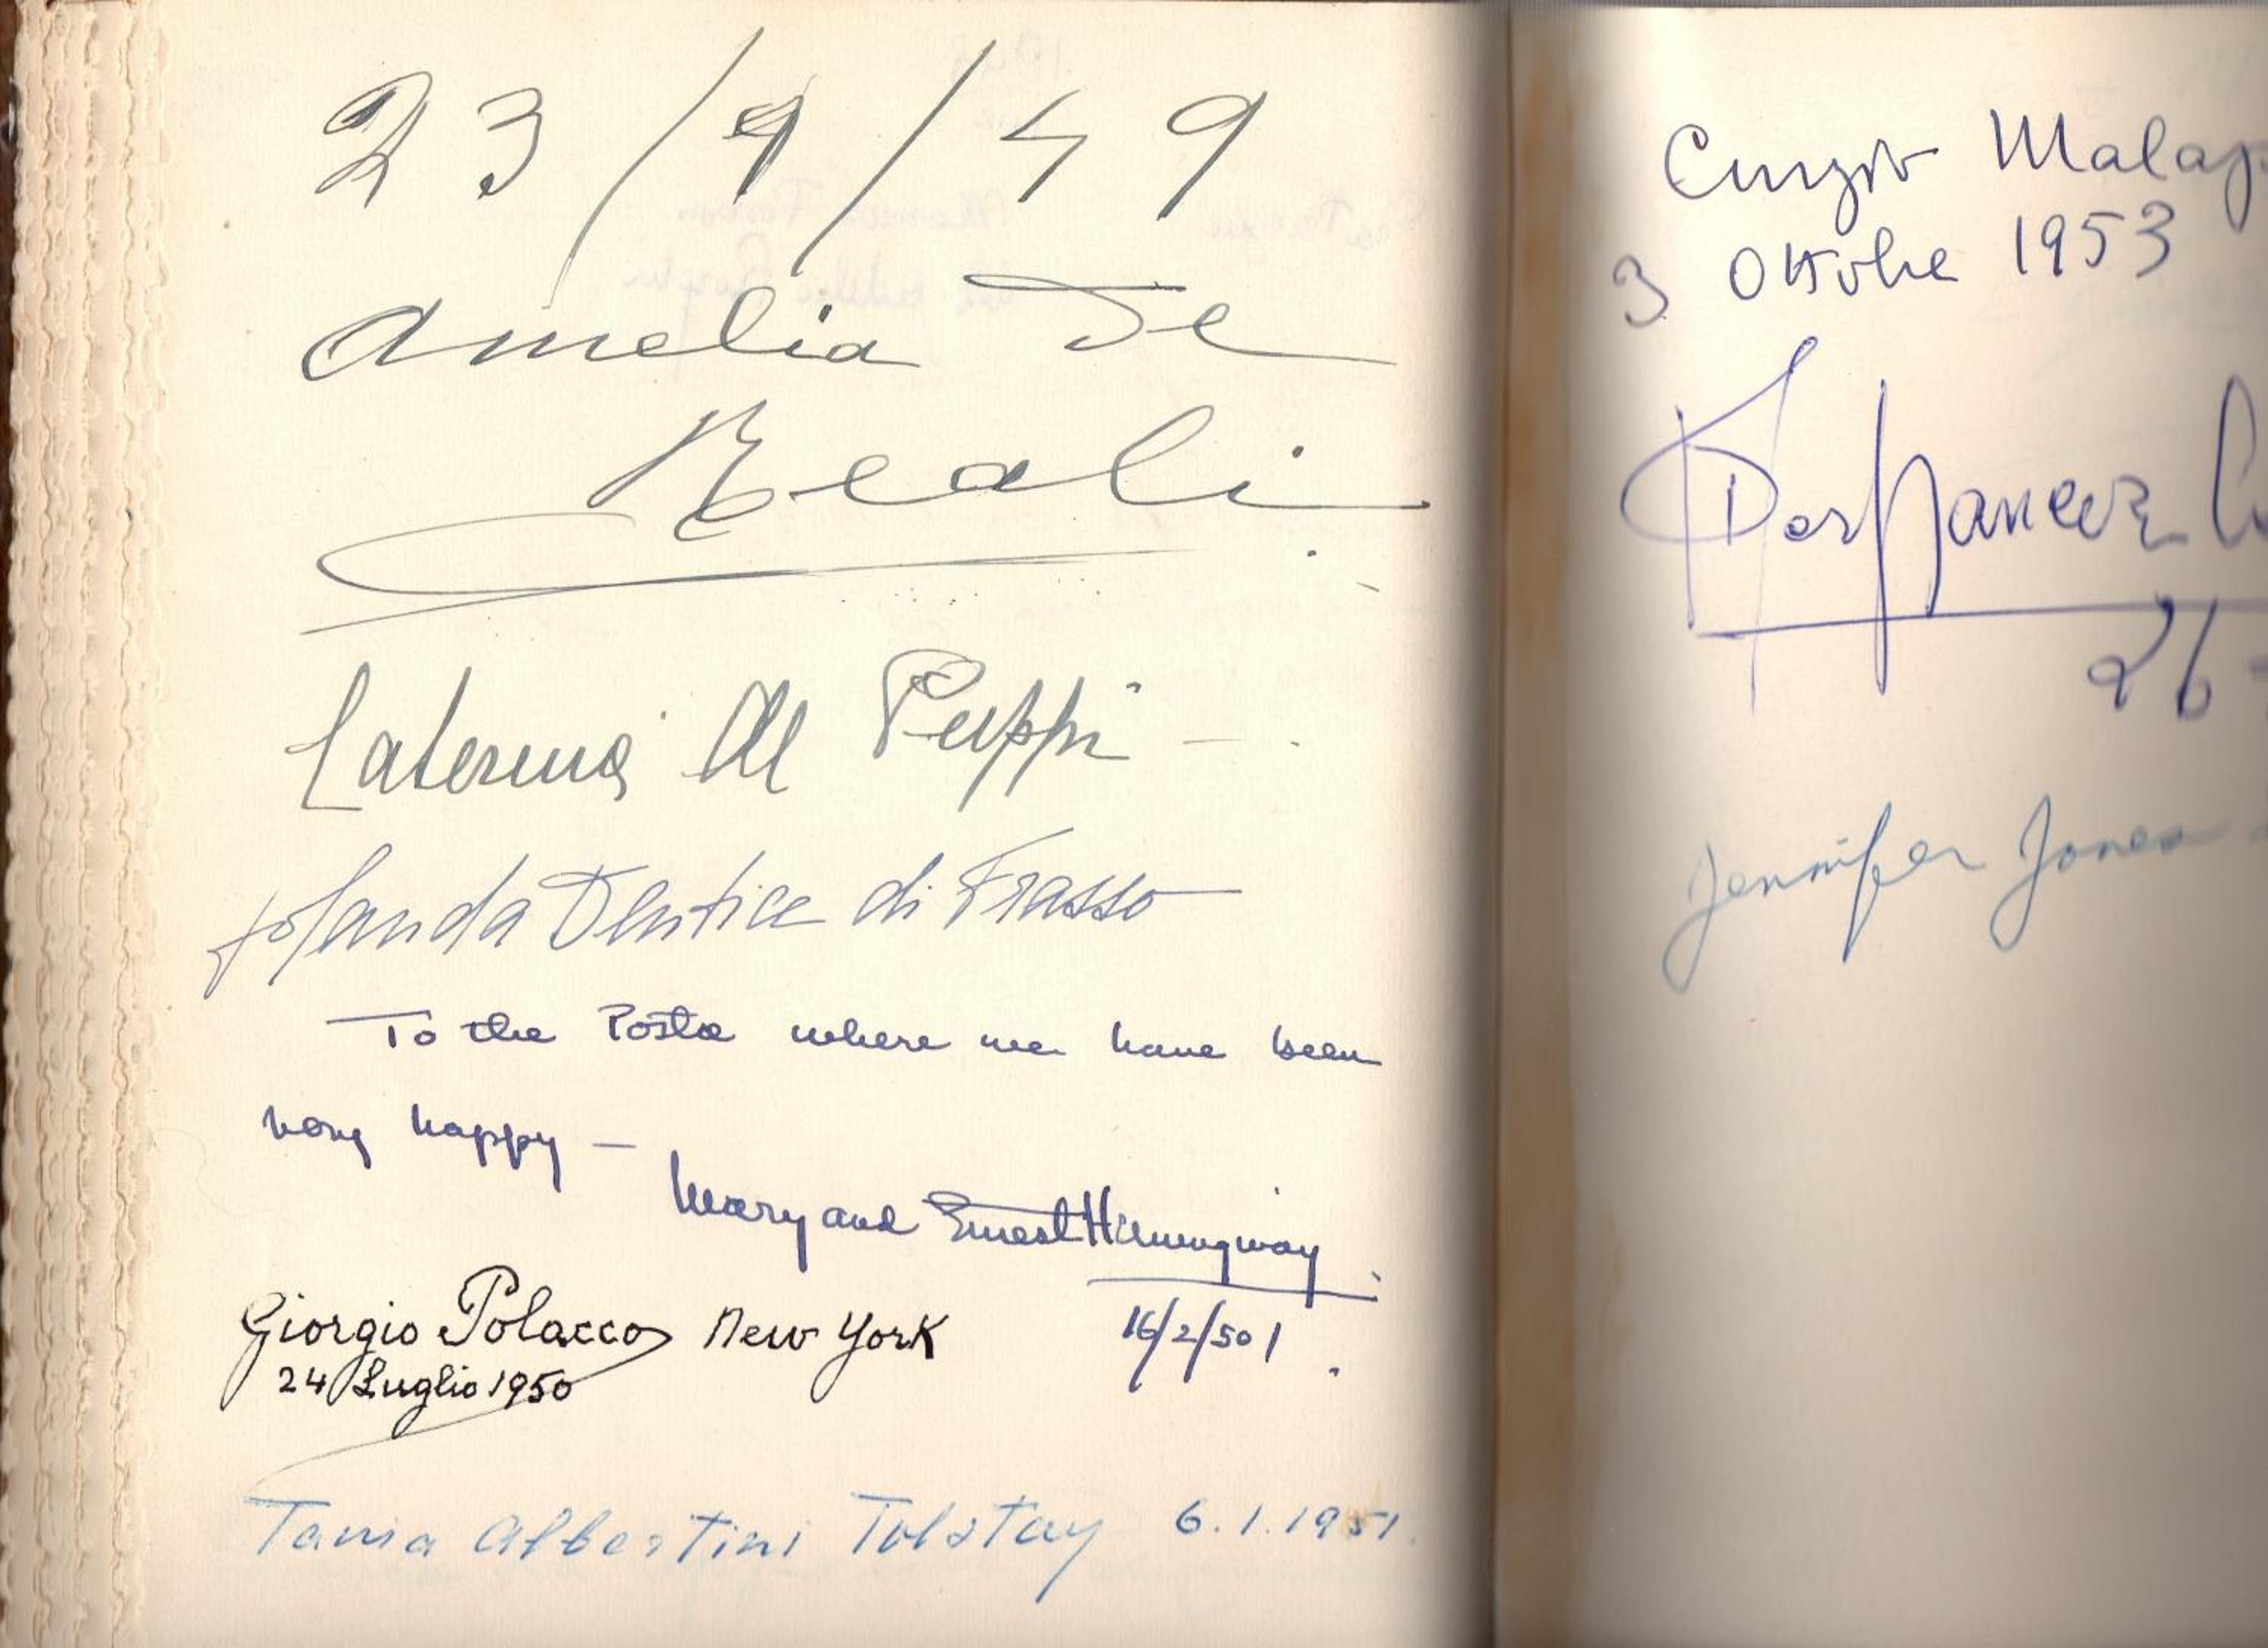 23/9/49
Amelia De
Reali
Caterina Al Puppi -
Jolanda Dentice di Frasso
To the Posta where we have been
very happy —
Mary and Ernest Hemingway
16/2/50
Giorgio Polacco New York
24 Luglio 1950
Tania Albertini Tolstoy 6.1.1951
Curzio Malap
3 Ottobre 1953
26 -
Jennifer Jones -